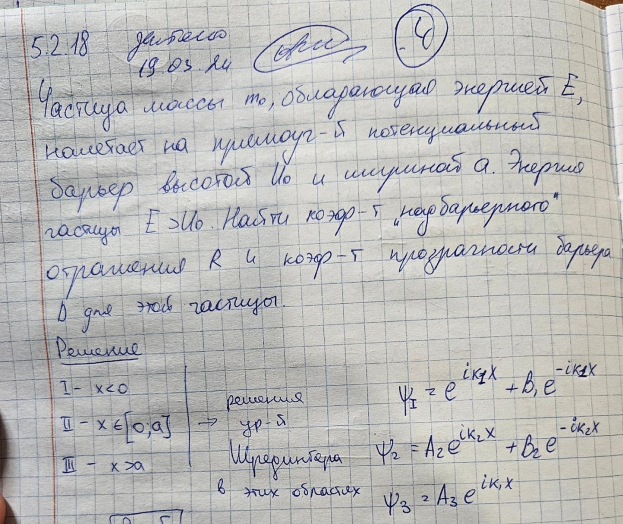 5.2.18 детально
19.03.24
4
Частица массы m₀, обладающая энергией E,
налетает на прямоуг-й потенциальный
барьер высотой U₀ и шириной a. Энергия
частицы E>U₀. Найти коэф-т „надбарьерного"
отражения R и коэф-т прозрачности барьера
D для этой частицы.
Решение
I - x<0
II - x∈[0;a] → решения ур-й
III - x>a Шредингера
в этих областях
ψ_I = e^{ik₁x} + B₁e^{-ik₁x}
ψ₂ = A₂e^{ik₂x} + B₂e^{-ik₂x}
ψ₃ = A₃e^{ik₁x}